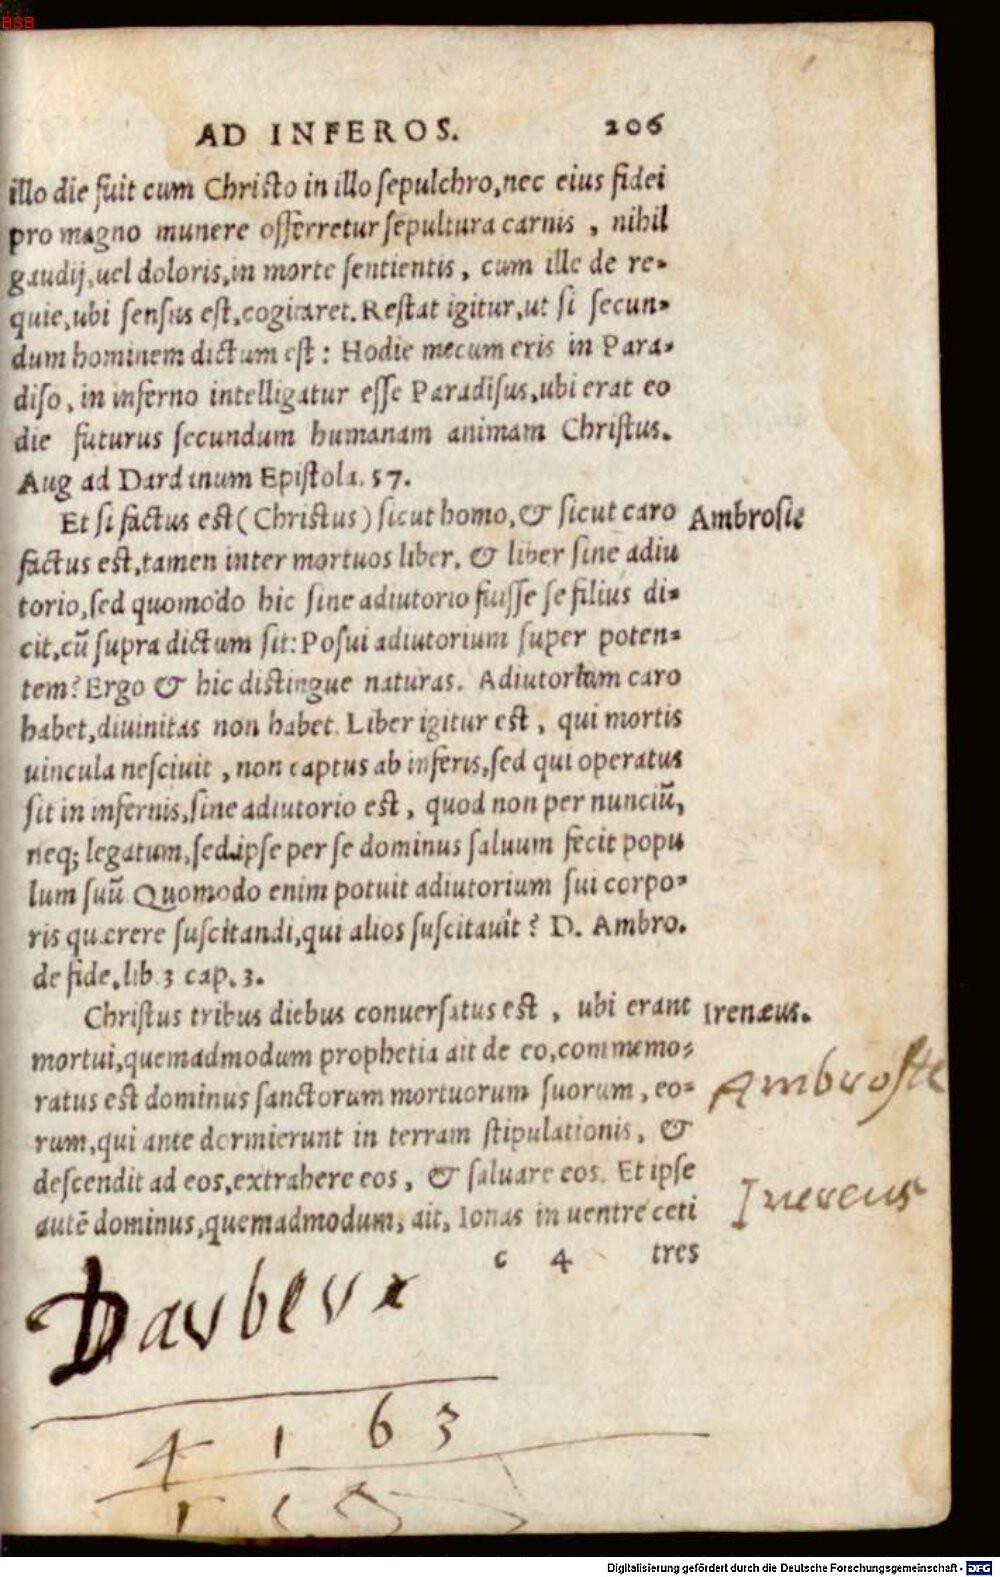 BSB
AD INFEROS. 206
illo die fuit cum Christo in illo sepulchro, nec eius fidei
pro magno munere offerretur sepultura carnis, nihil
gaudij, uel doloris, in morte sentientis, cum ille de re-
quie, ubi sensus est, cogitaret. Restat igitur, ut si secun-
dum hominem dictum est: Hodie mecum eris in Para-
diso, in inferno intelligatur esse Paradisus, ubi erat eo
die futurus secundum humanam animam Christus.
Aug ad Dardanum Epistola. 57.
Et si factus est (Christus) sicut homo, & sicut caro Ambrosie
factus est, tamen inter mortuos liber, & liber sine adiu
torio, sed quomodo hic sine adiutorio fuisse se filius di-
cit, cū supra dictum sit: Posui adiutorium super poten-
tem? Ergo & hic distingue naturas. Adiutorium caro
habet, diuinitas non habet. Liber igitur est, qui mortis
uincula nesciuit, non captus ab inferis, sed qui operatus
sit in infernis, sine adiutorio est, quod non per nunciū,
neq; legatum, sed ipse per se dominus saluum fecit popu
lum suū Quomodo enim potuit adiutorium sui corpo-
ris quærere suscitandi, qui alios suscitauit? D. Ambro.
de fide, lib. 3 cap. 3.
Christus tribus diebus conuersatus est, ubi erant Irenæus.
mortui, quemadmodum prophetia ait de eo, commemo-
ratus est dominus sanctorum mortuorum suorum, eo-
rum, qui ante dormierunt in terram stipulationis, &
descendit ad eos, extrahere eos, & saluare eos. Et ipse
autē dominus, quemadmodum, ait, Ionas in uentre ceti
c 4 tres
Ireneus
4 1 6 3
Digitalisierung gefördert durch die Deutsche Forschungsgemeinschaft - DFG